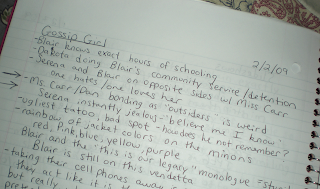 Gossip Girl
2/2/09
-Blair knows exact hours of schooling
-Dakota doing Blair's community service/detention
-Serena and Blair on opposite sides w/ Miss Carr
one hates/one loves her
-Ms. Carr/Dan bonding as "outsiders" is weird
Serena instantly jealous - "believe me I know"?
-ugliest tattoo, bad spot - how does he not remember?
-rainbow of jacket colors on the minons
red, pink, blue, yellow, purple
Blair and the "this is our legacy" monologue -
Blair is still on this vendetta
-taking their cell phones away
they act like it is
but really